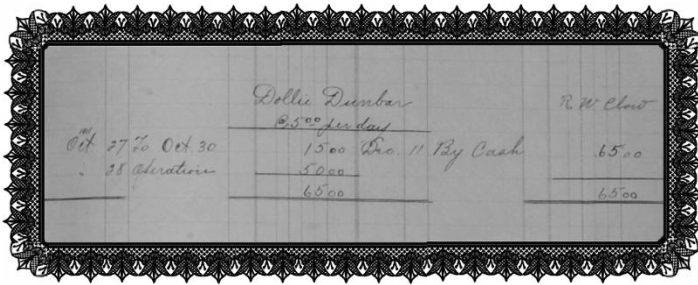 Dollie Dunbar R. W. Clow
@ 5 00 per day
Oct. 27 To Oct. 30 15 00 Dec. 11 By Cash 65 00
" 28 Operation 50 00
65 00 65 00